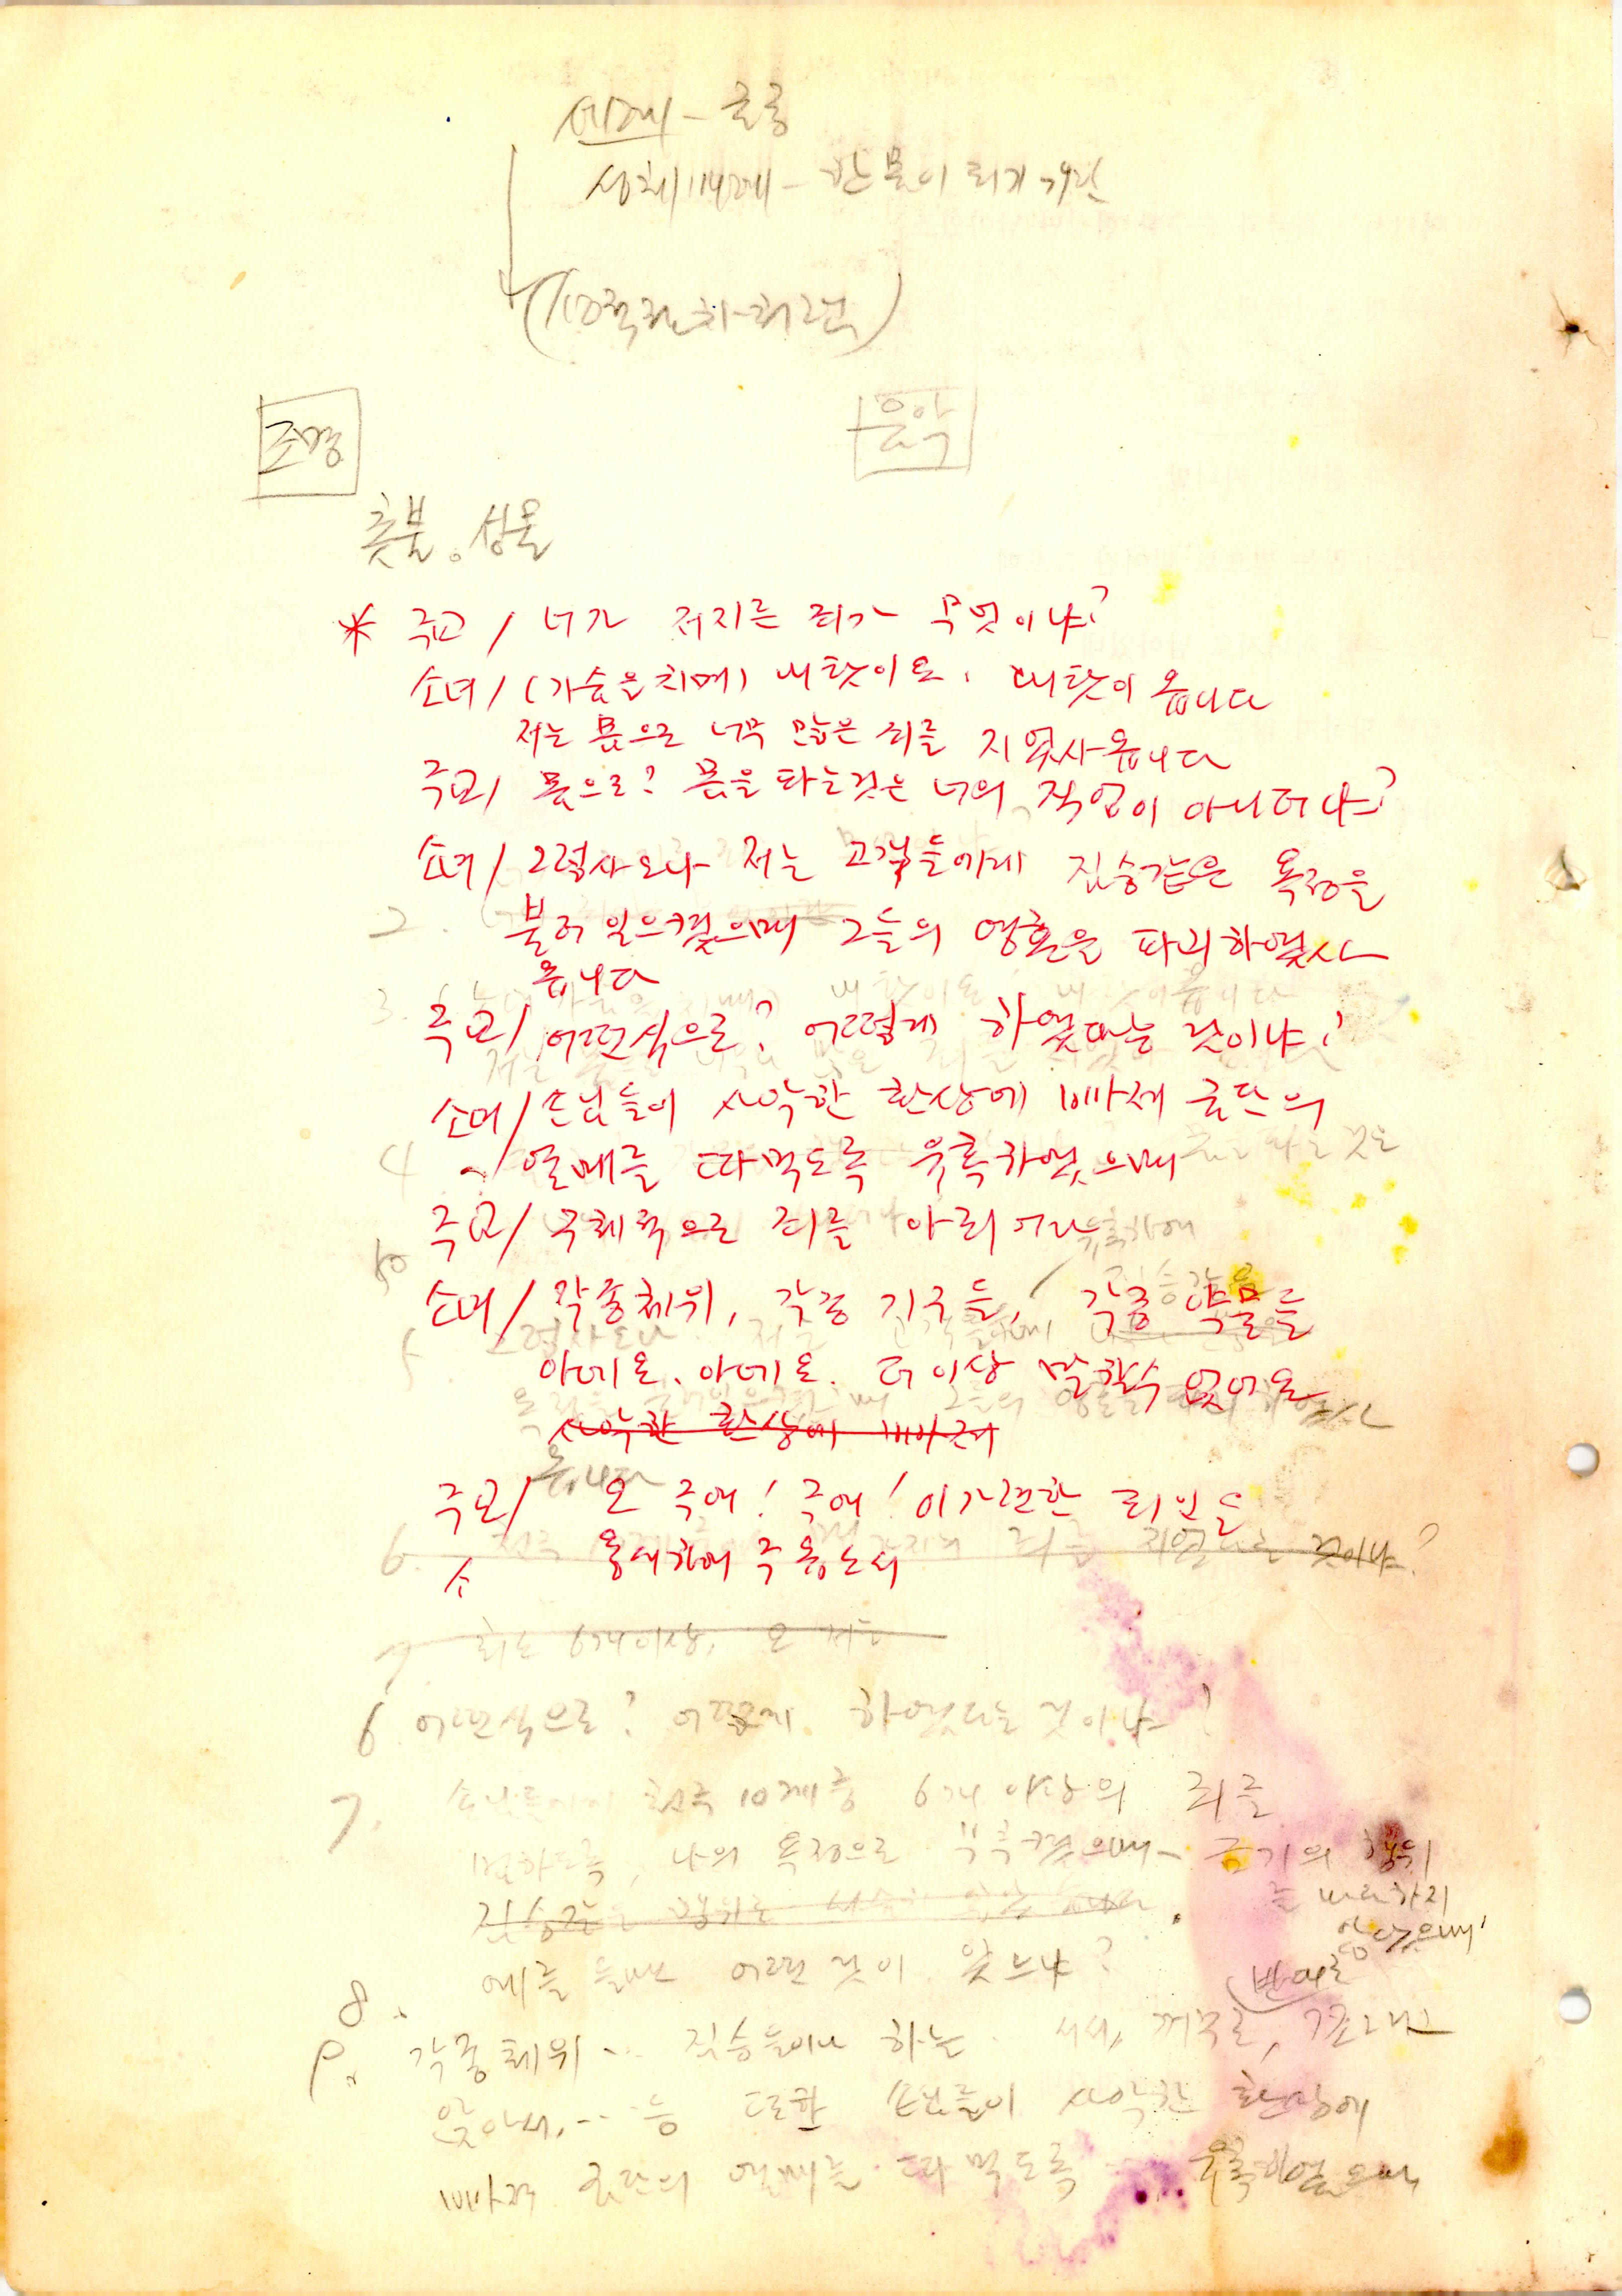 세례 - 긍정
성체 - 한 몸이 되기 거란
조명
음악
촛불. 성물
* 주교 / 너가 저지른 죄가 무엇이냐?
소녀 / (가슴을 치며) 내 탓이오. 내 탓이옵니다
저는 몸으로 너무 많은 죄를 지었사옵니다
주교 / 몸으로? 몸을 파는것은 너의 직업이 아니더냐?
소녀 / 그렇사오나 저는 고객들에게 짐승같은 욕정을
2.
불러 일으켰으며 그들의 영혼을 파괴하였사
옵니다
3. 내 탓이오 내 탓이옵니다
주교 / 어떤식으로? 어떻게 하였다는 것이냐?
소녀 / 손님들이 사악한 환상에 빠져 금단의
4
열매를 따먹도록 유혹하였으며
주교 / 구체적으로 죄를 아뢰어라
소녀 / 각종체위, 각종 기구들, 각종 약물들
짐승같은
5. 그렇사오나 저는
아네요. 아네요. 더이상 말할수 없어요
사악한 환상에 빠져
옵니다
주교 / 오 주여! 주여! 이 가련한 죄인을
6. 죄를 지었다는 것이냐?
소 용서하여 주옵소서
7 죄는 6개이상, 오 저는
6 어떤식으로? 어떻게 하였다는 것이냐?
7. 10계중 6개 이상의 죄를
범하도록, 나의 욕정으로 금기의 행위
짐승같은 행위로
를 마다하지
않았으며
8. 예를 들면 어떤 것이 있느냐?
반대로
9. 각종체위... 짐승들이나 하는 서서, 꺼꾸로,
앉아서... 등 또한 손님들이 사악한 환상에
빠져 금단의 열매를 따먹도록 유혹하였으며